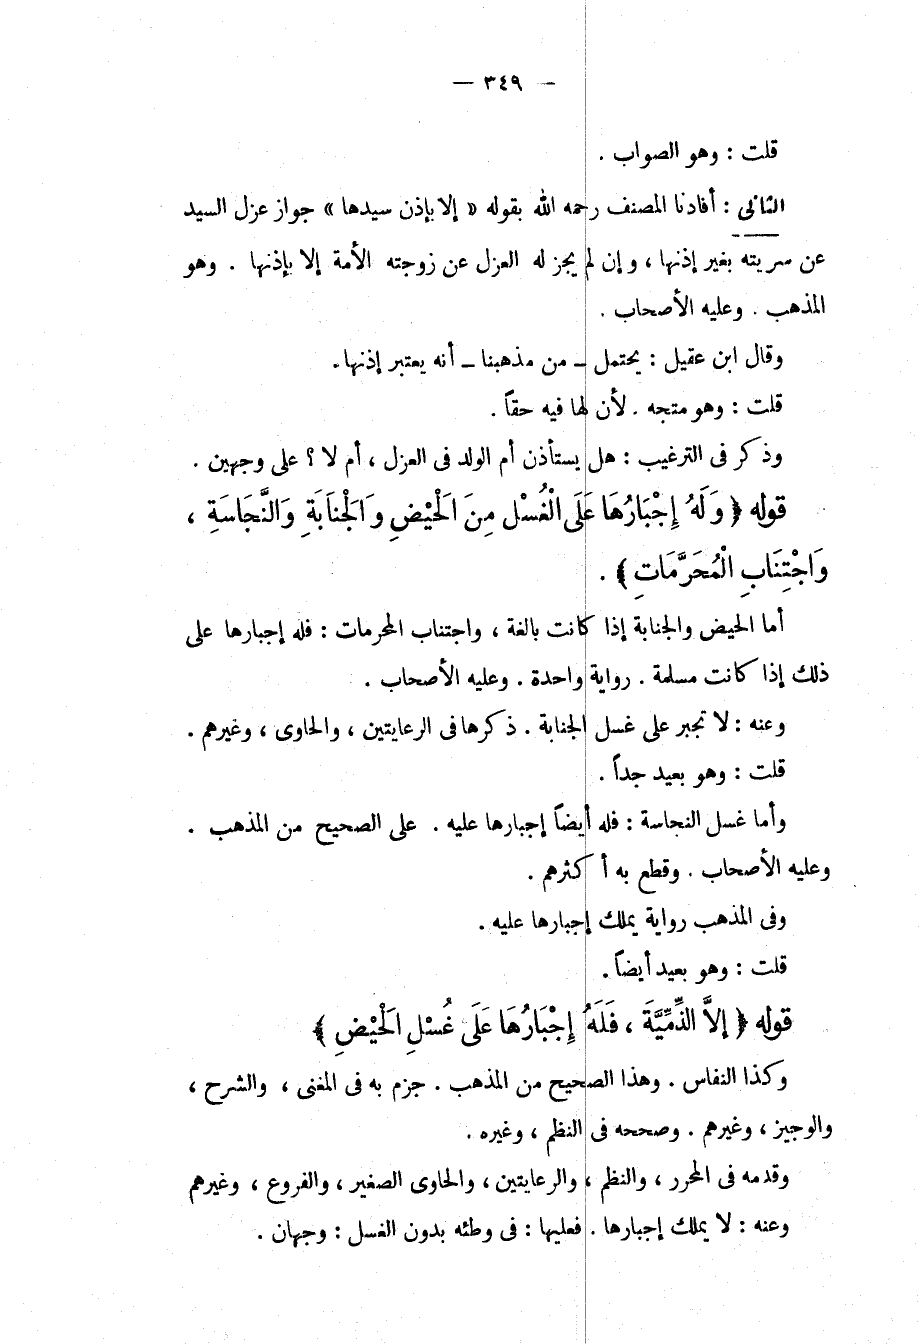 — ٣٤٩ —
قلت : وهو الصواب .
الثانى : أفادنا المصنف رحمه الله بقوله « إلا بإذن سيدها » جواز عزل السيد
عن سريته بغير إذنها ، و إن لم يجز له العزل عن زوجته الأمة إلا بإذنها . وهو
المذهب . وعليه الأصحاب .
وقال ابن عقيل : يحتمل ــ من مذهبنا ــ أنه يعتبر إذنها .
قلت : وهو متجه . لأن لها فيه حقاً .
وذكر فى الترغيب : هل يستأذن أم الولد فى العزل ، أم لا ؟ على وجهين .
قوله ﴿ وَلَهُ إِجْبَارُهَا عَلَى الْغُسْلِ مِنَ الْحَيْضِ وَالْجَنَابَةِ وَالنَّجَاسَةِ ،
وَاجْتِنَابِ الْمُحَرَّمَاتِ ﴾ .
أما الحيض والجنابة إذا كانت بالغة ، واجتناب المحرمات : فله إجبارها على
ذلك إذا كانت مسلمة . رواية واحدة . وعليه الأصحاب .
وعنه : لا تجبر على غسل الجنابة . ذكرها فى الرعايتين ، والحاوى ، وغيرهم .
قلت : وهو بعيد جداً .
وأما غسل النجاسة : فله أيضاً إجبارها عليه . على الصحيح من المذهب .
وعليه الأصحاب . وقطع به أكثرهم .
وفى المذهب رواية يملك إجبارها عليه .
قلت : وهو بعيد أيضاً .
قوله ﴿ إِلاَّ الذِّمِّيَّةَ ، فَلَهُ إِجْبَارُهَا عَلَى غُسْلِ الْحَيْضِ ﴾
وكذا النفاس . وهذا الصحيح من المذهب . جزم به فى المغنى ، والشرح ،
والوجيز ، وغيرهم . وصححه فى النظم ، وغيره .
وقدمه فى المحرر ، والنظم ، والرعايتين ، والحاوى الصغير ، والفروع ، وغيرهم
وعنه : لا يملك إجبارها . فعليها : فى وطئه بدون الغسل : وجهان .